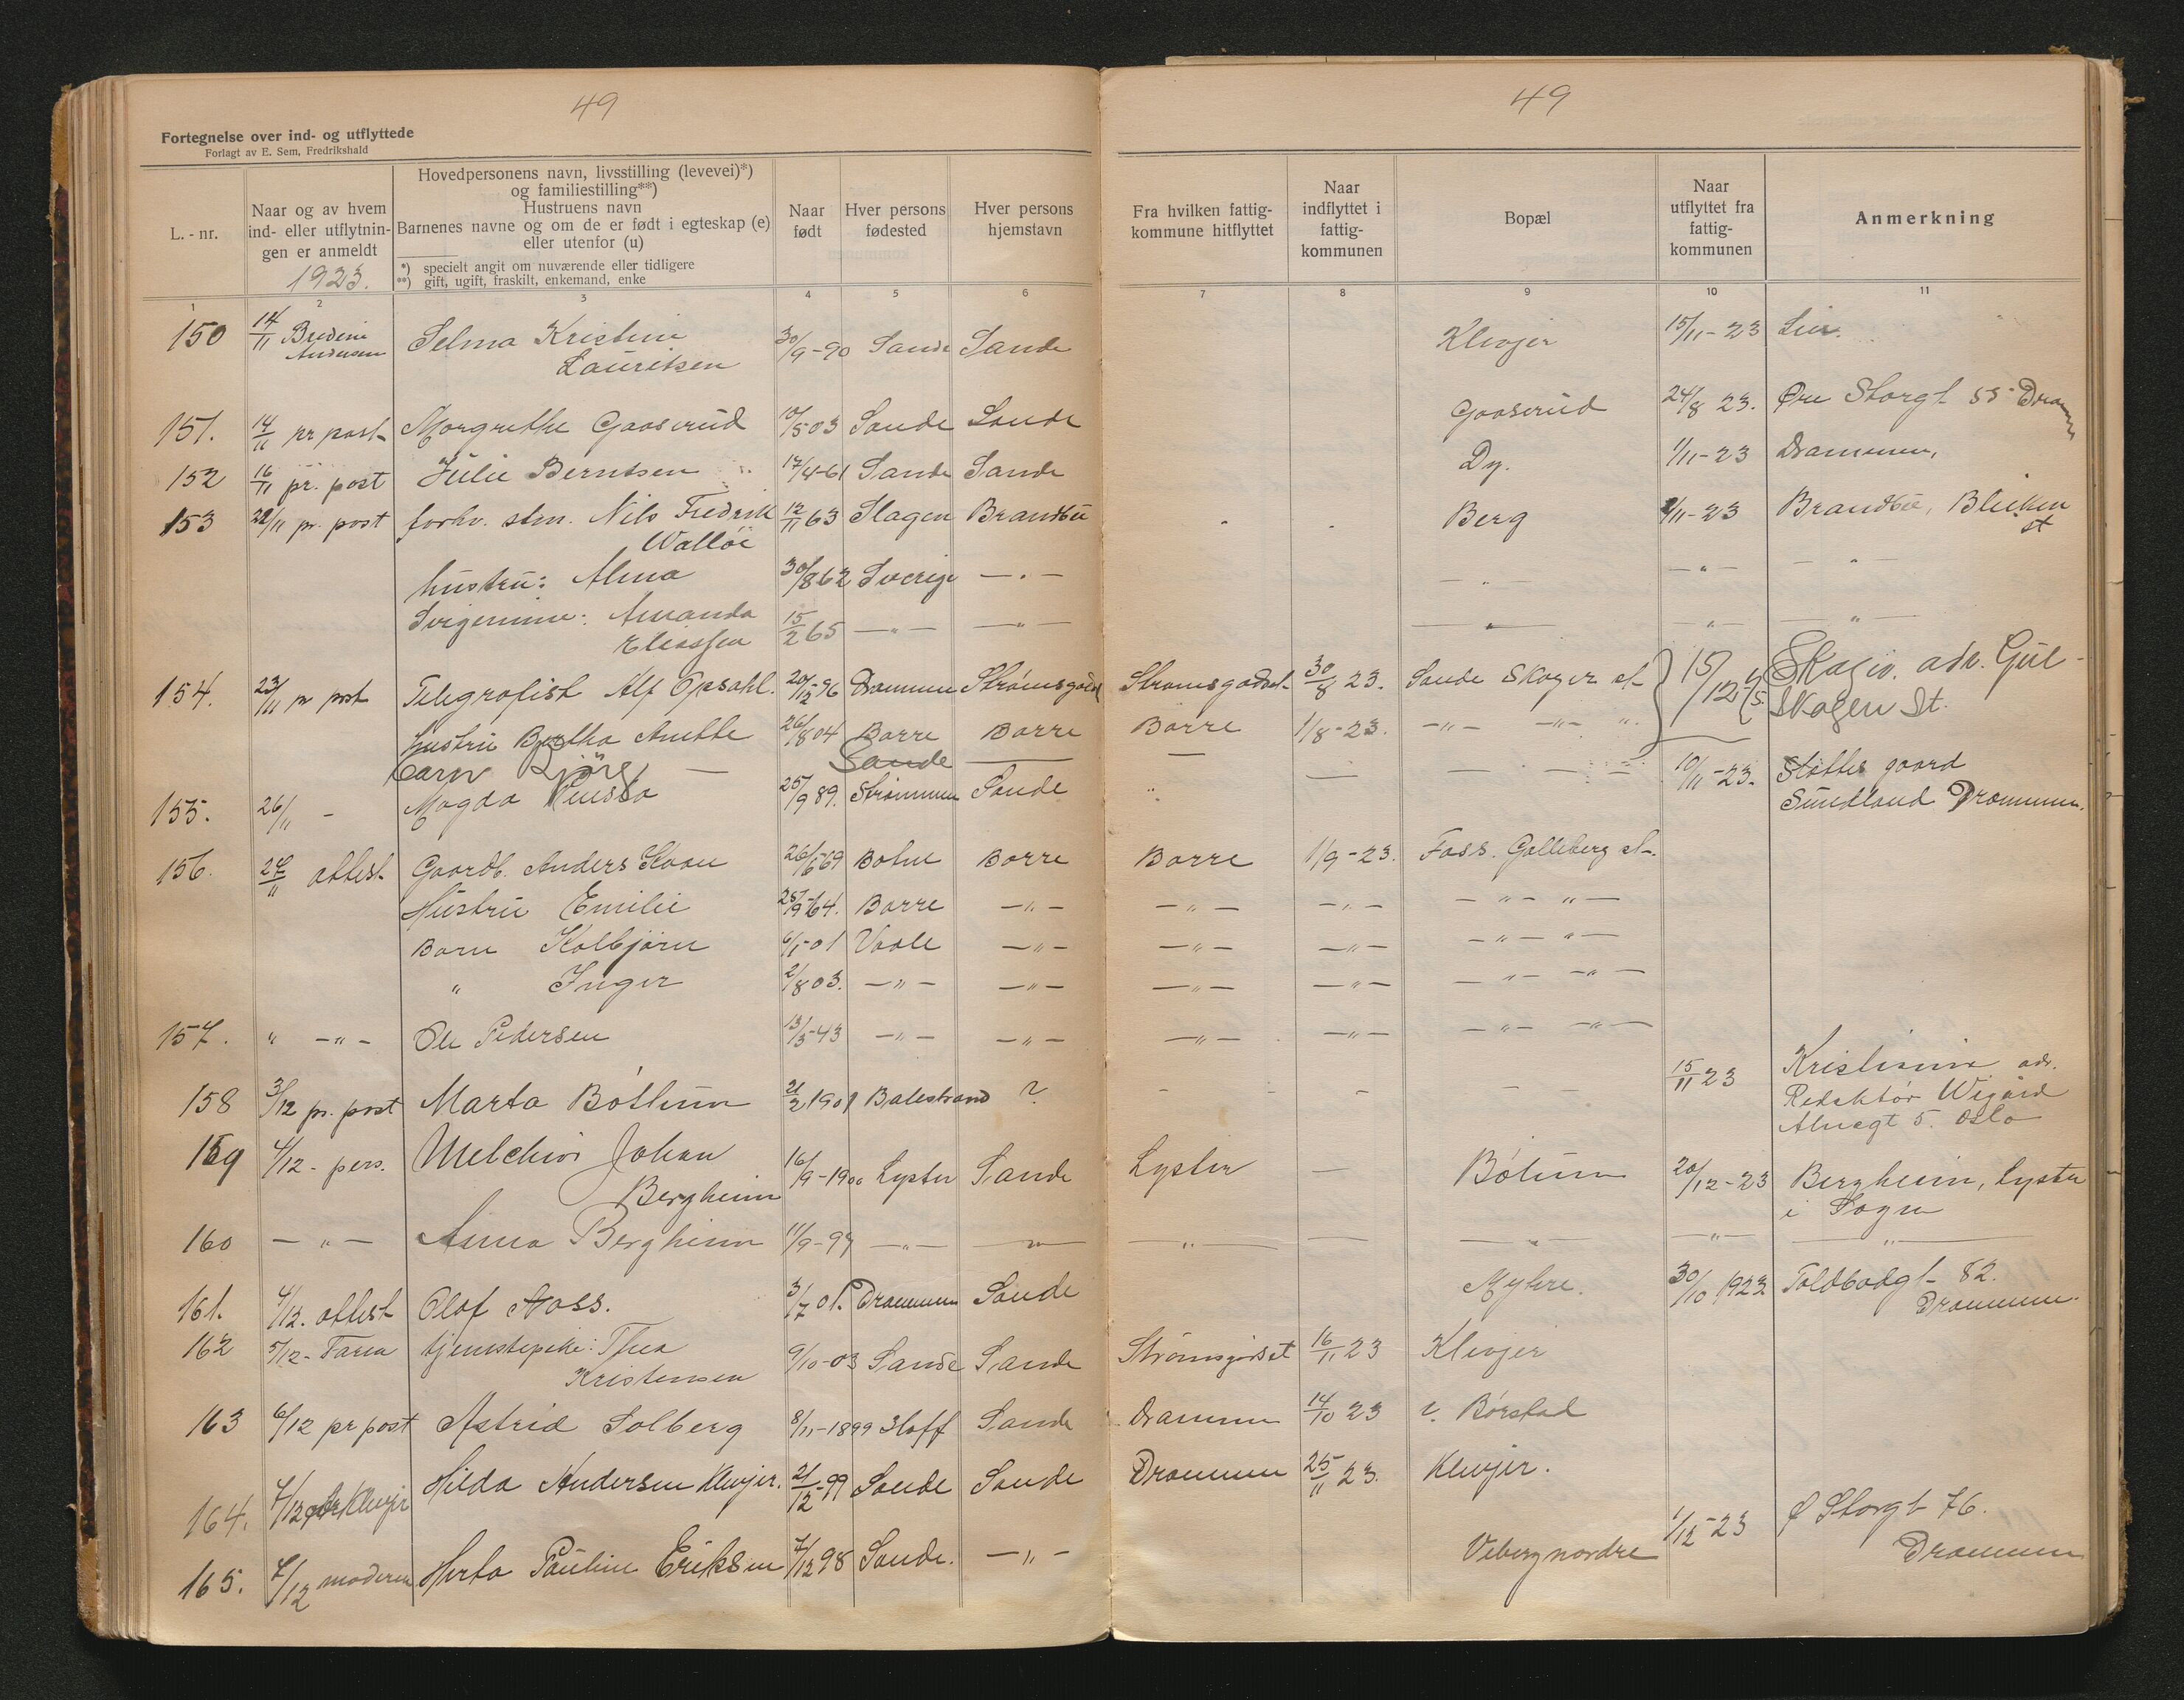 49
49
Fortegnelse over ind- og utflyttede
Forlagt av E. Sem, Fredrikshald
L. - nr.
Naar og av hvem
ind- eller utflytnin-
gen er anmeldt
1923.
Hovedpersonens navn, livsstilling (levevei)*)
og familiestilling**)
Hustruens navn
Barnenes navne og om de er født i egteskap (e)
eller utenfor (u)
*) specielt angit om nuværende eller tidligere
**) gift, ugift, fraskilt, enkemand, enke
Naar
født
Hver persons
fødested
Hver persons
hjemstavn
Fra hvilken fattig-
kommune hitflyttet
Naar
indflyttet i
fattig-
kommunen
Bopæl
Naar
utflyttet fra
fattig-
kommunen
Anmerkning
1 2 3 4 5 6 7 8 9 10 11
150 14/11 Bredine Andersen Selma Kristine 30/9-90 Sande Sande Klevjer 15/11-23 Lier.
Lauritsen
151. 14/11 pr post Margrethe Gaaserud 10/5 03 Sande Sande Gaaserud 24/8 23. Øvre Storgt 55 Dramm
152 16/11 pr. post Julie Berntsen 17/4-61 Sande Sande Dy. 1/11-23 Drammen,
153 22/11 pr. post forhv. stm. Nils Fredrik 12/11 63 Slagen Brandbu Berg 1/11-23 Brandbu, Bleiken
Walløe st
hustru: Alma 30/8 62 Sverige —„— —„— —„— —„—
Svigerinne: Amanda 15/2 65 —„— —„— —„— —„— —„—
Eliassen
154. 23/11 pr post Telegrafist Alf Opsahl. 20/12-96 Drammen Strømsgodset Strømsgodset 30/8 23. Sande Skoger st 15/12 Skogv. adr. Gul-
Skogen St.
hustru Bertha Anette 26/8 04 Borre Borre Borre 1/8-23. —„— —„— „
barn Bjørg — Sande —
155. 26/11 - Magda 25/9 89. Strømmen Sande „ 10/11-23. Støttes gaard
Sundland Drammen.
156. 27/11 attest Gaardb. Anders Skaan 26/6-69 Botne Borre Borre 1/9-23. Foss. Galleberg st.
Hustru Emilie 25/9-64. Borre —„— —„— —„— —„— „—
Barn Kolbjørn 6/1-01 Vaale —„— —„— —„— —„— „—
„ Inger 2/8 03. —„— —„— —„— —„— —„— —„—
157. „ —„— Ole Pedersen 13/5-43 —„— —„— —„— —„— —„— —„—
158 3/12 pr. post Marta Bøthun 21/2 1901 Balestrand ? - - - - - 15/11 23 Kristiania adr.
Redaktør Wigård
5. Oslo
159 4/12 - pers. Melchior Johan 16/9-1900 Lyster Sande Lyster — Bøtum 20/12-23 Bergheim, Lyster
Bergheim i Sogn
160 —„— Anna Bergheim 11/9-97 —„— —„— —„— — —„— —„— —„—
161. 4/12. attest Olaf Aass. 3/7 01. Drammen Sande Myhre. 30/10 1923 Toldbodgt 82.
Drammen.
162 5/12- tjenestepike: Thea 9/10-03 Sande Sande Strømsgodset 16/11 23 Klevjer
Kristensen
163 6/12 pr post Astrid Solberg 8/11-1899 Hoff Sande Drammen 14/10 23 v. Børstad
164. 7/12 Klevjer Hilda Andersen Klevjer. 21/12-99 Sande Sande Drammen 25/11 23. Klevjer.
165. 7/12 moderen Herta Pauline Eriksen 7/12 98 Sande. —„— Veberg nordre 1/12-23 Ø Storgt 76.
Drammen